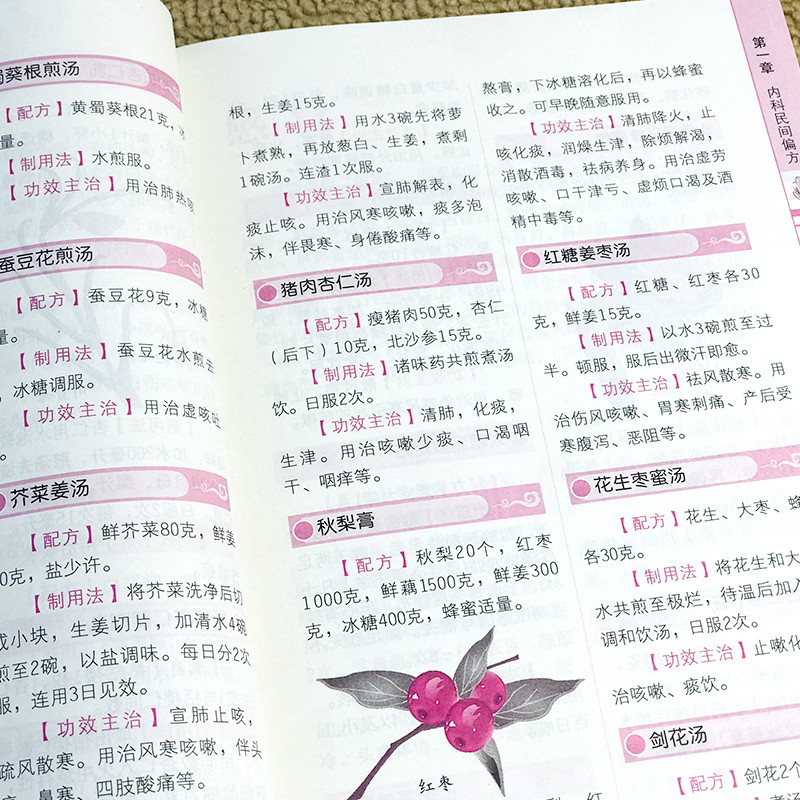 蜀葵根煎汤
【配方】黄蜀葵根21克,冰
量。
【制用法】水煎服。
【功效主治】用治肺热咳
蚕豆花煎汤
【配方】蚕豆花9克,冰糖
量。
【制用法】蚕豆花水煎去
,冰糖调服。
【功效主治】用治虚咳吐
。
芥菜姜汤
【配方】鲜芥菜80克,鲜姜
0克,盐少许。
【制用法】将芥菜洗净后切
成小块,生姜切片,加清水4碗
煎至2碗,以盐调味。每日分2次
服,连用3日见效。
【功效主治】宣肺止咳,
疏风散寒。用治风寒咳嗽,伴头
、鼻塞、四肢酸痛等。
根,生姜15克。
【制用法】用水3碗先将萝
卜煮熟,再放葱白、生姜,煮剩
1碗汤。连渣1次服。
【功效主治】宣肺解表,化
痰止咳。用治风寒咳嗽,痰多泡
沫,伴畏寒、身倦酸痛等。
猪肉杏仁汤
【配方】瘦猪肉50克,杏仁
(后下)10克,北沙参15克。
【制用法】诸味药共煎煮汤
饮。日服2次。
【功效主治】清肺,化痰,
生津。用治咳嗽少痰、口渴咽
干、咽痒等。
秋梨膏
【配方】秋梨20个,红枣
1000克,鲜藕1500克,鲜姜300
克,冰糖400克,蜂蜜适量。
红枣
熬膏,下冰糖溶化后,再以蜂蜜
收之。可早晚随意服用。
【功效主治】清肺降火,止
咳化痰,润燥生津,除烦解渴,
消散酒毒,祛病养身。用治虚劳
咳嗽、口干津亏、虚烦口渴及酒
精中毒等。
红糖姜枣汤
【配方】红糖、红枣各30
克,鲜姜15克。
【制用法】以水3碗煎至过
半。顿服,服后出微汗即愈。
【功效主治】祛风散寒。用
治伤风咳嗽、胃寒刺痛、产后受
寒腹泻、恶阻等。
花生枣蜜汤
【配方】花生、大枣、蜂
各30克。
【制用法】将花生和大
水共煎至极烂,待温后加入
调和饮汤,日服2次。
【功效主治】止嗽化
治咳嗽、痰饮。
剑花汤
【配方】剑花2个
第一章 内科民间偏方